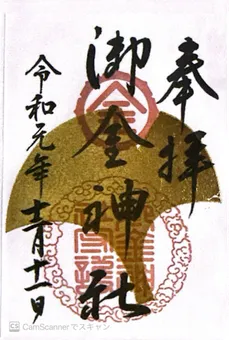 奉拝
御金神社
令和元年十二月十一日
CS CamScannerでスキャン